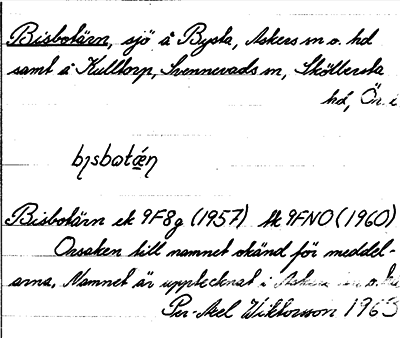 Bisbotärn, sjö å Bysta, Askers sn o. hd
samt å Kulltorp, Svennevads sn, Sköllersta
hd, Ör. i
bisbotǽn
Bisbotärn ek 9F8g (1957) tk 9FNO (1960)
Orsaken till namnet okänd för meddel-
arna. Namnet är upptecknat i Askers sn o. hd
Per-Axel Wiktorsson 1963